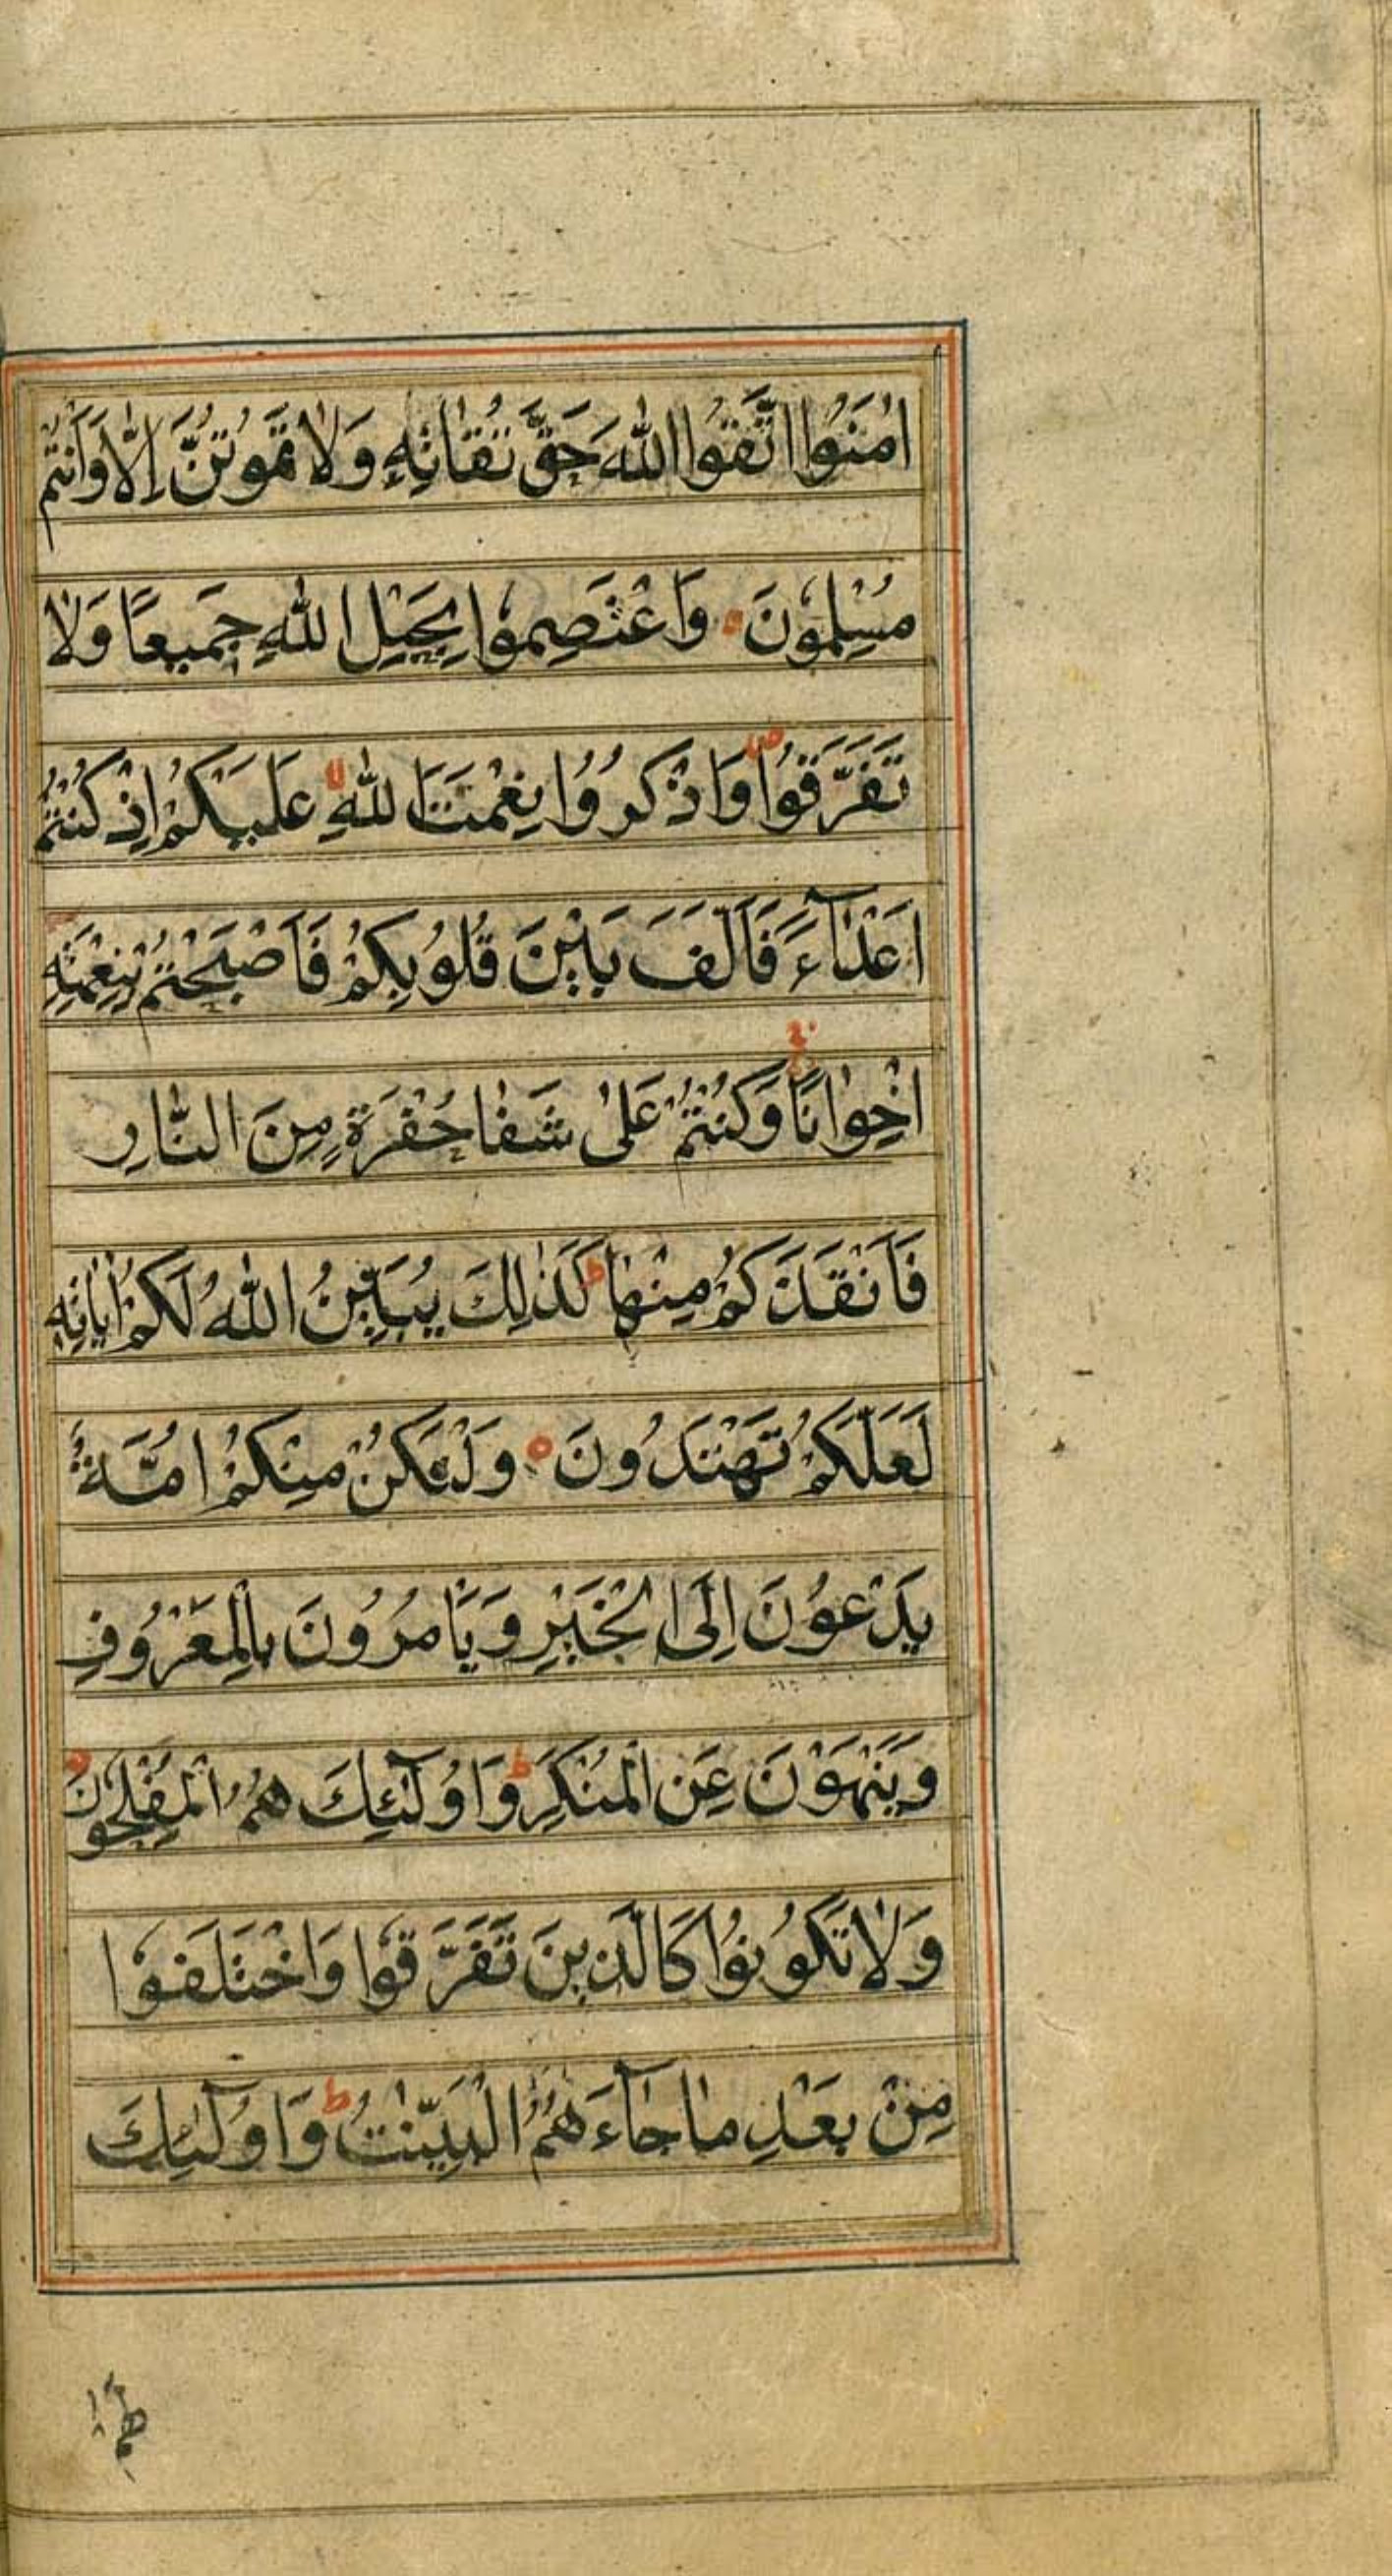 اٰمَنُوا اتَّقُوا اللّٰهَ حَقَّ تُقَاتِهٖ وَلَا تَمُوْتُنَّ اِلَّا وَاَنْتُمْ
مُسْلِمُوْنَ وَاعْتَصِمُوْا بِحَبْلِ اللّٰهِ جَمِيْعًا وَلَا
تَفَرَّقُوْا ص وَاذْكُرُوْا نِعْمَتَ اللّٰهِ عَلَيْكُمْ اِذْ كُنْتُمْ
اَعْدَآءً فَاَلَّفَ بَيْنَ قُلُوْبِكُمْ فَاَصْبَحْتُمْ بِنِعْمَتِهٖ
اِخْوَانًا وَكُنْتُمْ عَلٰى شَفَا حُفْرَةٍ مِنَ النَّارِ
فَاَنْقَذَكُمْ مِنْهَا ط كَذٰلِكَ يُبَيِّنُ اللّٰهُ لَكُمْ اٰيَاتِهٖ
لَعَلَّكُمْ تَهْتَدُوْنَ ه وَلْتَكُنْ مِنْكُمْ اُمَّةٌ
يَدْعُوْنَ اِلَى الْخَيْرِ وَيَأْمُرُوْنَ بِالْمَعْرُوْفِ
وَيَنْهَوْنَ عَنِ الْمُنْكَرِ ط وَاُولٰٓئِكَ هُمُ الْمُفْلِحُوْنَ
وَلَا تَكُوْنُوْا كَالَّذِيْنَ تَفَرَّقُوْا وَاخْتَلَفُوْا
مِنْ بَعْدِ مَا جَآءَهُمُ الْبَيِّنٰتُ ط وَاُولٰٓئِكَ
لهم